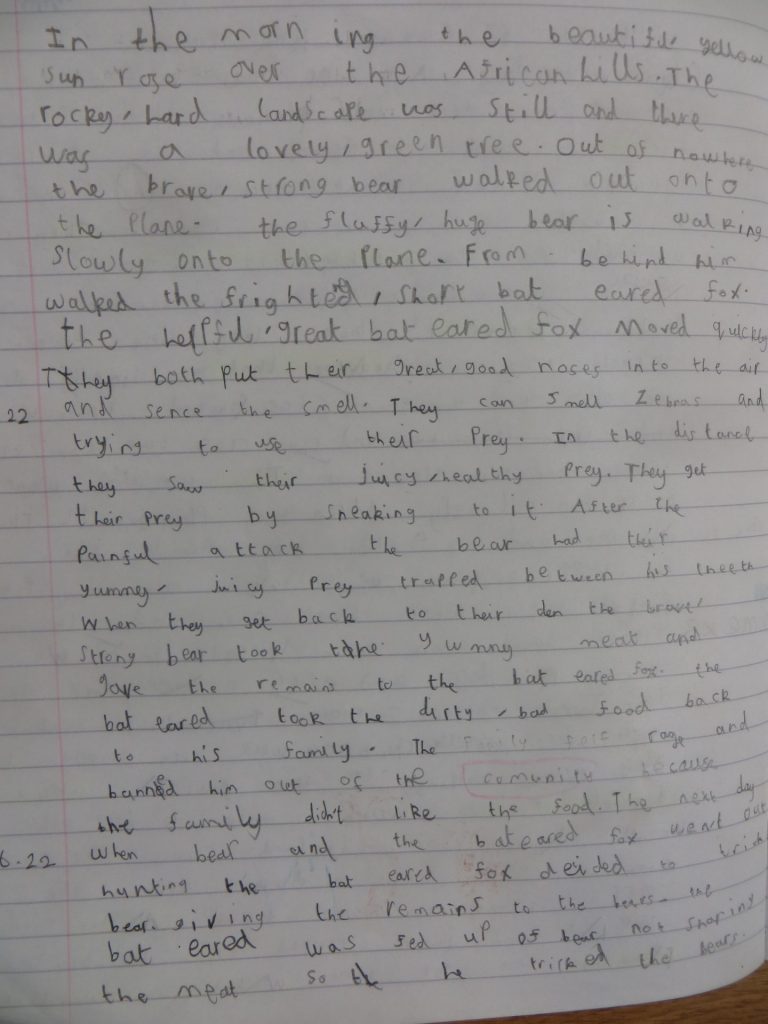 In the morn ing the beautiful yellow
sun rose over the African hills. The
rocky, hard landscape was still and there
was a lovely, green tree. Out of nowhere
the brave, strong bear walked out onto
the Plane. the fluffy, huge bear is walking
slowly onto the Plane. From behind him
walked the frighted, short bat eared fox.
the helpful, great bat eared fox moved quickly
They both put their great, good noses into the air
22 and sence the smell. They can smell Zebras and
trying to use their Prey. In the distance
they saw their juicy, healthy Prey. They get
their prey by sneaking to it. After the
painful attack the bear had their
yummey, juicy Prey trapped between his theeth
When they get back to their den the brave,
strong bear took the yummy meat and
gave the remains to the bat eared fox. the
bat eared took the dirty, bad food back
to his family. The family rage and
banned him out of the comunity because
the family didn't like the food. The next day
6.22 When bear and the bat eared fox went out
hunting the bat eared fox deided to trick
bear. giving the remains to the bears. the
bat eared was fed up of bear not sharing
the meat so he tricked the bears.